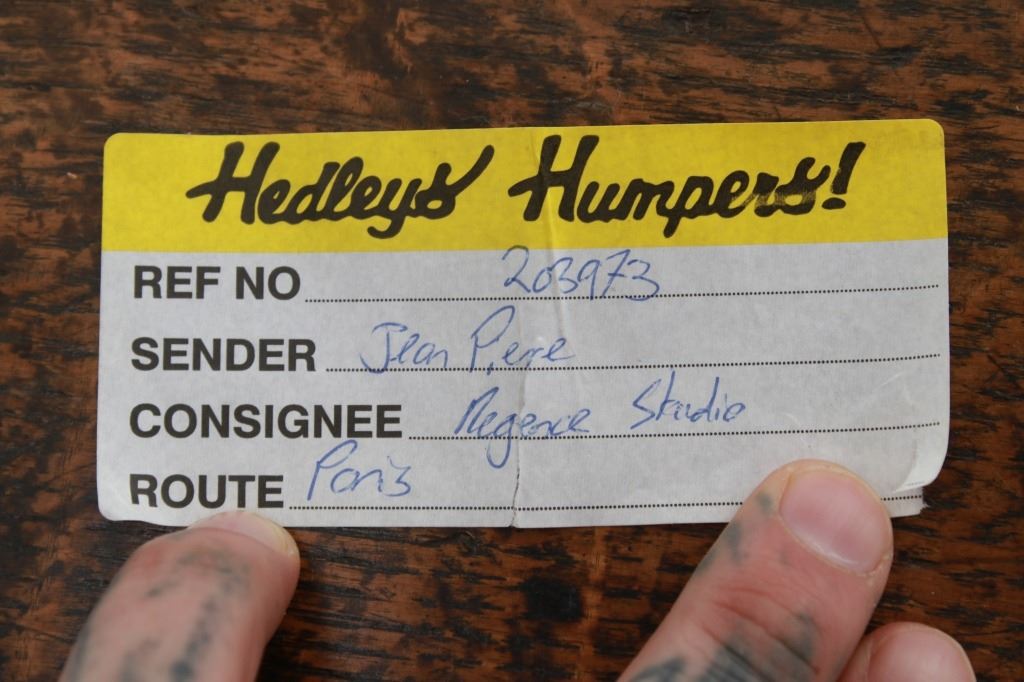 Hedleys Humpers!
REF NO 203973
SENDER Jean Pierre
CONSIGNEE Regence Studio
ROUTE Paris